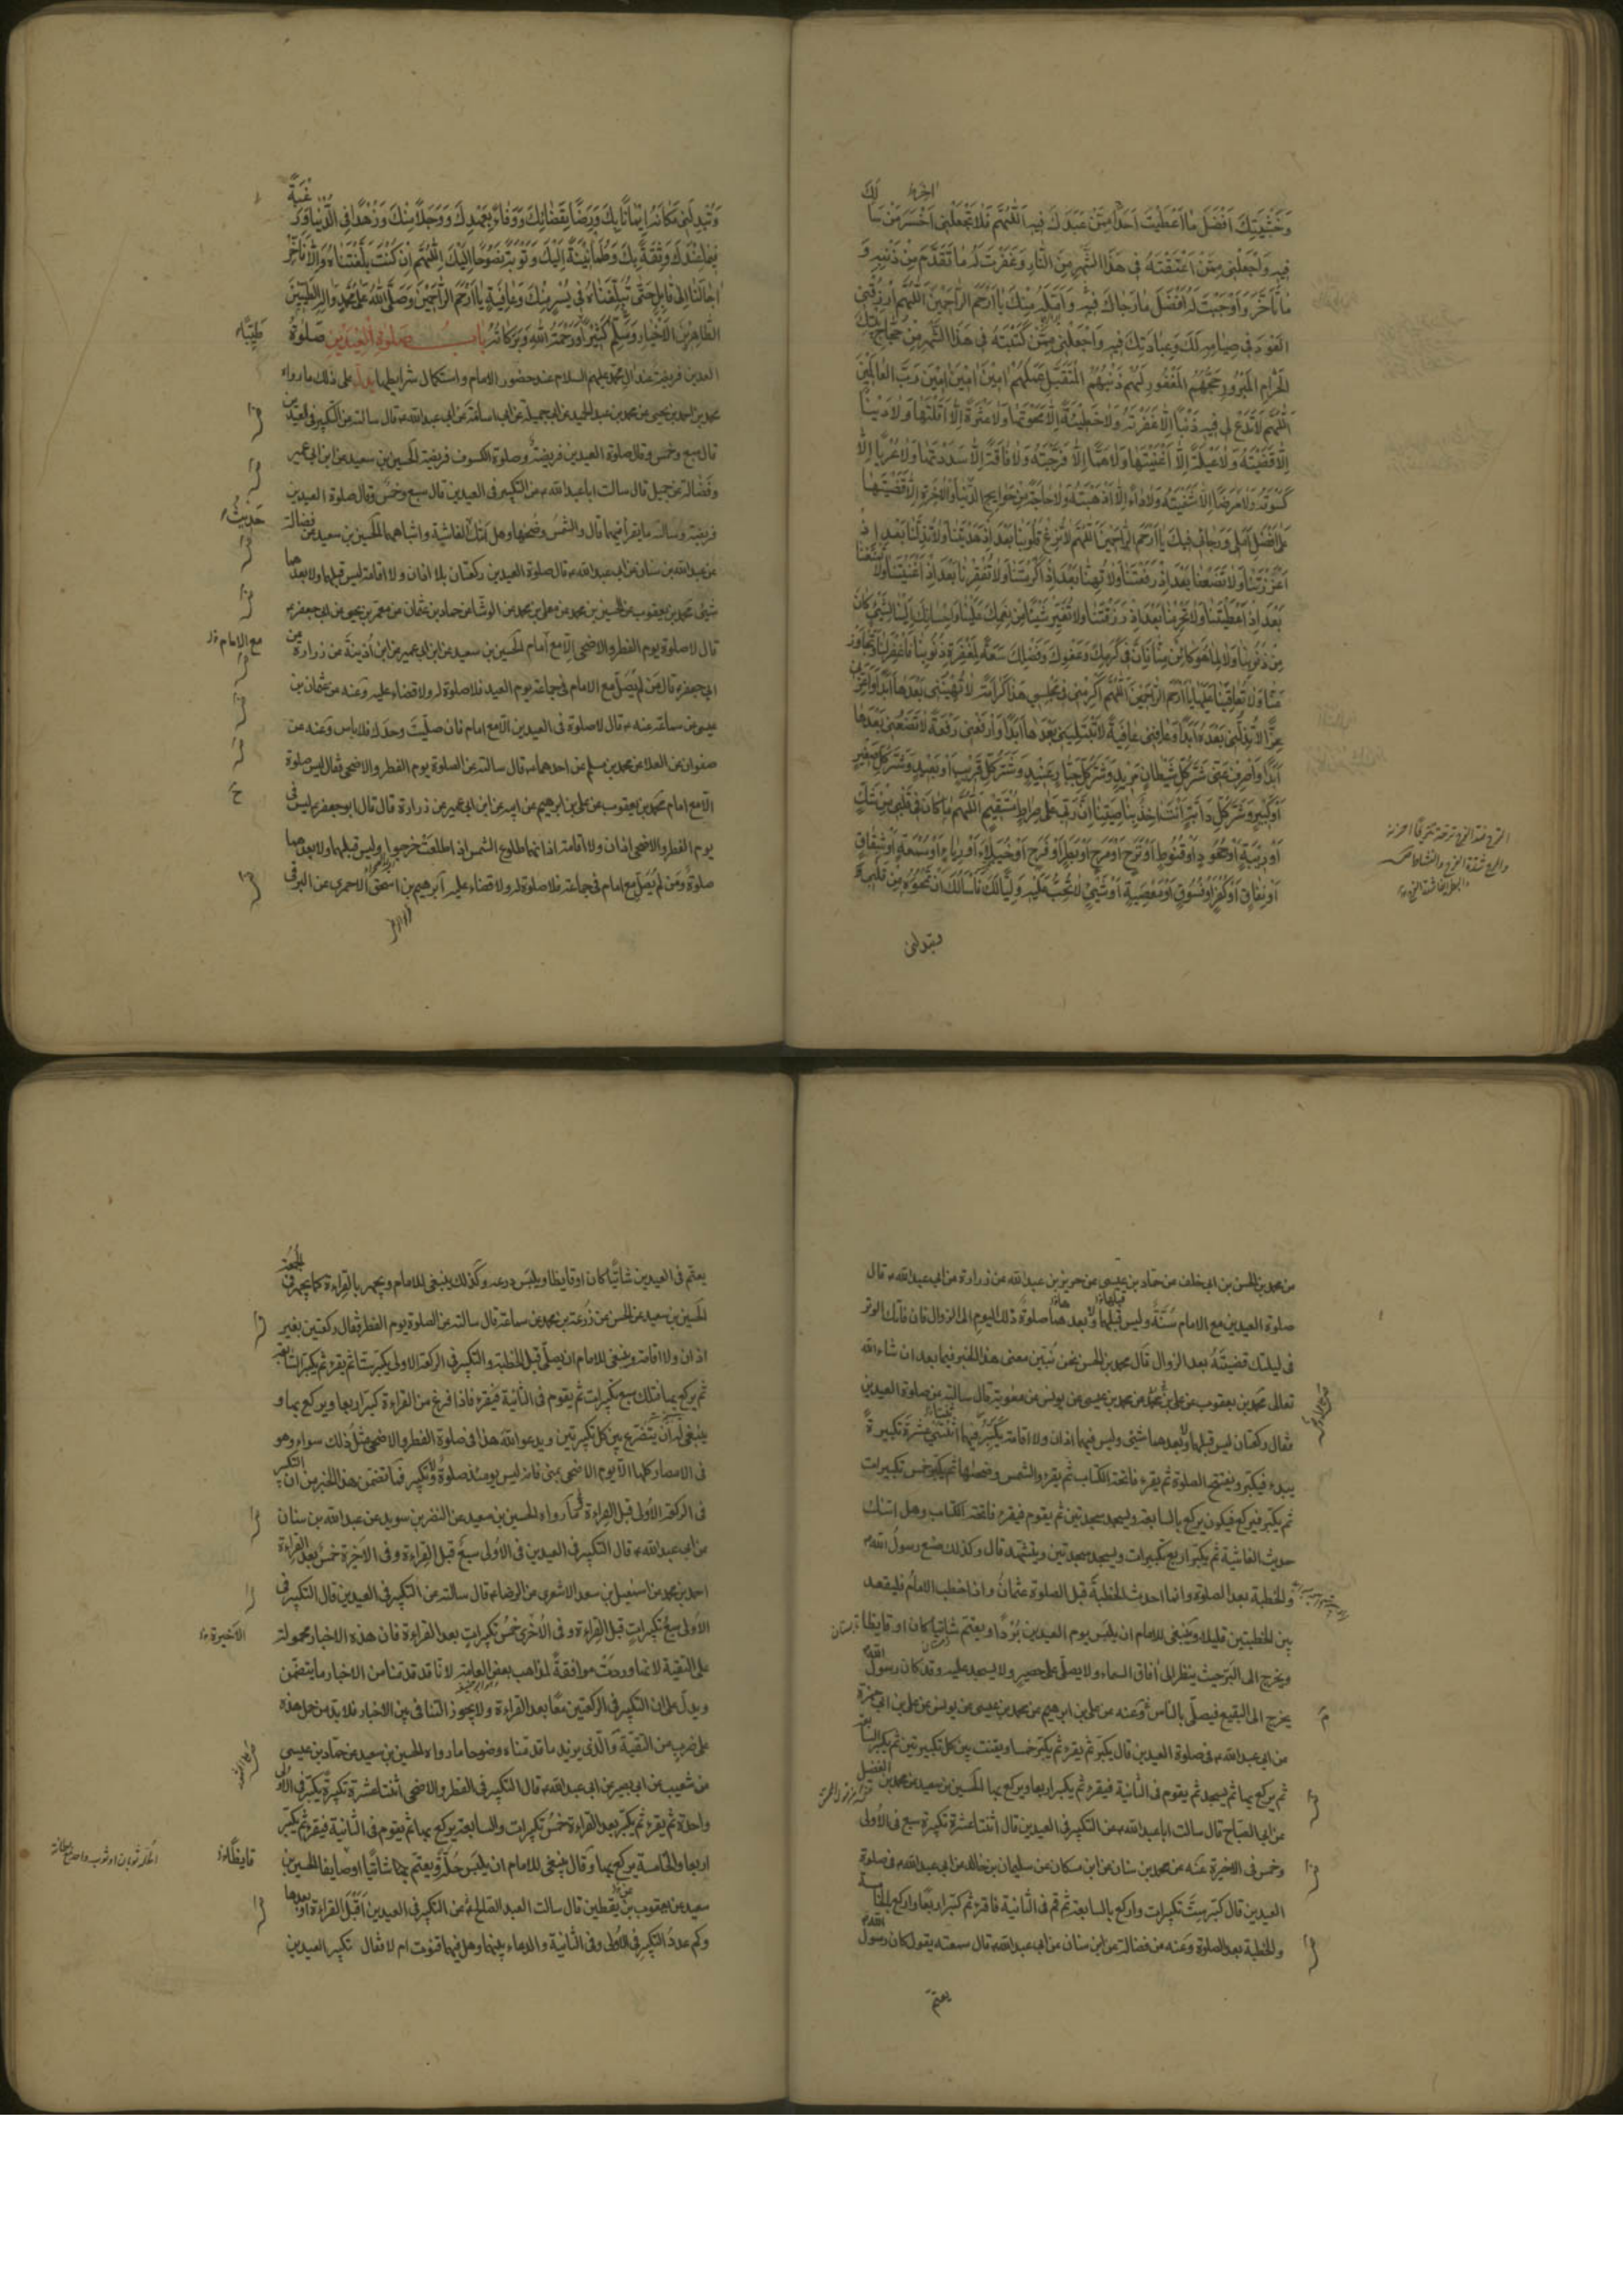 وَخَشْيَتِكَ اَفْضَلَ مَا اَعْطَيْتَ اَحَدًا مِمَّنْ عَبَدَكَ فِيهِ اَللّٰهُمَّ فَلَا تَجْعَلْنِي اَخْسَرَ مَنْ سَاَلَكَ
فِيهِ وَاجْعَلْنِي مِمَّنْ اَعْتَقْتَهُ فِي هَذَا الشَّهْرِ مِنَ النَّارِ وَغَفَرْتَ لَهُ مَا تَقَدَّمَ مِنْ ذَنْبِهِ وَ
مَا تَاَخَّرَ وَاَوْجَبْتَ لَهُ اَفْضَلَ مَا رَجَاكَ فِيهِ وَاَمَّلَهُ مِنْكَ يَا اَرْحَمَ الرَّاحِمِينَ اَللّٰهُمَّ ارْزُقْنِي
الْعَوْدَ فِي صِيَامِهِ لَكَ وَعِبَادَتِكَ فِيهِ وَاجْعَلْنِي مِمَّنْ كَتَبْتَهُ فِي هَذَا الشَّهْرِ مِنْ حُجَّاجِ بَيْتِكَ
الْحَرَامِ الْمَبْرُورِ حَجُّهُمُ الْمَغْفُورِ لَهُمْ ذَنْبُهُمُ الْمُتَقَبَّلِ عَمَلُهُمْ اٰمِينَ اٰمِينَ اٰمِينَ رَبَّ الْعَالَمِينَ
اَللّٰهُمَّ لَا تَدَعْ لِي فِيهِ ذَنْبًا اِلَّا غَفَرْتَهُ وَلَا خَطِيئَةً اِلَّا مَحَوْتَهَا وَلَا عَثْرَةً اِلَّا اَقَلْتَهَا وَلَا دَيْنًا
اِلَّا قَضَيْتَهُ وَلَا عَيْلَةً اِلَّا اَغْنَيْتَهَا وَلَا هَمًّا اِلَّا فَرَّجْتَهُ وَلَا فَاقَةً اِلَّا سَدَدْتَهَا وَلَا عُرْيًا اِلَّا
كَسَوْتَهُ وَلَا مَرَضًا اِلَّا شَفَيْتَهُ وَلَا دَاءً اِلَّا اَذْهَبْتَهُ وَلَا حَاجَةً مِنْ حَوَائِجِ الدُّنْيَا وَالْاٰخِرَةِ اِلَّا قَضَيْتَهَا
عَلَى اَفْضَلِ اَمَلِي وَرَجَائِي فِيكَ يَا اَرْحَمَ الرَّاحِمِينَ اَللّٰهُمَّ لَا تُزِغْ قُلُوبَنَا بَعْدَ اِذْ هَدَيْتَنَا وَلَا تُذِلَّنَا بَعْدَ اِذْ
اَعْزَزْتَنَا وَلَا تَضَعْنَا بَعْدَ اِذْ رَفَعْتَنَا وَلَا تُهِنَّا بَعْدَ اِذْ اَكْرَمْتَنَا وَلَا تُفْقِرْنَا بَعْدَ اِذْ اَغْنَيْتَنَا وَلَا تَمْنَعْنَا
بَعْدَ اِذْ اَعْطَيْتَنَا وَلَا تَحْرِمْنَا بَعْدَ اِذْ رَزَقْتَنَا وَلَا تُغَيِّرْ شَيْئًا مِنْ نِعَمِكَ عَلَيْنَا وَاِحْسَانِكَ اِلَيْنَا لِشَيْءٍ كَانَ
مِنْ ذُنُوبِنَا وَلَا لِمَا هُوَ كَائِنٌ مِنَّا فَاِنَّ فِي كَرَمِكَ وَعَفْوِكَ وَفَضْلِكَ سَعَةً لِمَغْفِرَةِ ذُنُوبِنَا فَاغْفِرْ لَنَا وَتَجَاوَزْ
عَنَّا وَلَا تُعَاقِبْنَا عَلَيْهَا يَا اَرْحَمَ الرَّاحِمِينَ اَللّٰهُمَّ اَكْرِمْنِي فِي مَجْلِسِي هَذَا كَرَامَةً لَا تُهِينُنِي بَعْدَهَا اَبَدًا وَاَعِزَّنِي
عِزًّا لَا تُذِلُّنِي بَعْدَهُ اَبَدًا وَعَافِنِي عَافِيَةً لَا تَبْتَلِينِي بَعْدَهَا اَبَدًا وَارْفَعْنِي رَفْعَةً لَا تَضَعُنِي بَعْدَهَا
اَبَدًا وَاصْرِفْ عَنِّي شَرَّ كُلِّ شَيْطَانٍ مَرِيدٍ وَشَرَّ كُلِّ جَبَّارٍ عَنِيدٍ وَشَرَّ كُلِّ قَرِيبٍ اَوْ بَعِيدٍ وَشَرَّ كُلِّ صَغِيرٍ
اَوْ كَبِيرٍ وَشَرَّ كُلِّ دَابَّةٍ اَنْتَ اٰخِذٌ بِنَاصِيَتِهَا اِنَّ رَبِّي عَلَى صِرَاطٍ مُسْتَقِيمٍ اَللّٰهُمَّ مَا كَانَ فِي قَلْبِي مِنْ شَكٍّ
اَوْ رِيبَةٍ اَوْ جُحُودٍ اَوْ قُنُوطٍ اَوْ فَرَحٍ اَوْ مَرَحٍ اَوْ بَطَرٍ اَوْ فَرَحٍ اَوْ خُيَلَاءَ اَوْ رِيَاءٍ اَوْ سُمْعَةٍ اَوْ شِقَاقٍ
اَوْ نِفَاقٍ اَوْ كُفْرٍ اَوْ فُسُوقٍ اَوْ مَعْصِيَةٍ اَوْ شَيْءٍ لَا تُحِبُّ عَلَيْهِ وَلِيًّا لَكَ فَاَسْاَلُكَ اَنْ تَمْحُوَهُ مِنْ قَلْبِي
وتبدلني
وَتُبْدِلَنِي مَكَانَهُ اِيمَانًا بِكَ وَرِضًا بِقَضَائِكَ وَوَفَاءً بِعَهْدِكَ وَوَجَلًا مِنْكَ وَزُهْدًا فِي الدُّنْيَا وَرَغْبَةً
فِيمَا عِنْدَكَ وَثِقَةً بِكَ وَطُمَأْنِينَةً اِلَيْكَ وَتَوْبَةً نَصُوحًا اِلَيْكَ اَللّٰهُمَّ اِنْ كُنْتَ بَلَّغْتَنَاهُ وَاِلَّا فَاَخِّرْ
اٰجَالَنَا اِلَى قَابِلٍ حَتَّى تُبَلِّغَنَاهُ فِي يُسْرٍ مِنْكَ وَعَافِيَةٍ يَا اَرْحَمَ الرَّاحِمِينَ وَصَلَّى اللّٰهُ عَلَى مُحَمَّدٍ وَاٰلِهِ الطَّيِّبِينَ
الطَّاهِرِينَ الْاَخْيَارِ وَسَلَّمَ كَثِيرًا وَرَحْمَةُ اللّٰهِ وَبَرَكَاتُهُ باب صلوة العيدين صَلٰوةُ
العيدين فريضة عند آل محمد عليهم السلام عند حضور الامام واستكمال شرايطها يدل على ذلك ما رواه
محمد بن احمد بن يحيى عن محمد بن عبد الحميد عن ابى جميلة عن ابى اسامة عن ابى عبد الله ع قال سالته عن التكبير فى العيدين
قال سبع وخمس وقال صلوة العيدين فريضة وصلوة الكسوف فريضة الحسين بن سعيد عن ابن ابى عمير
وفضالة عن جميل قال سالت ابا عبد الله ع عن التكبير فى العيدين قال سبع وخمس وقال صلوة العيدين
فريضة وسالته ما يقرأ فيهما قال والشمس وضحيها وهل اتيك حديث الغاشية واشباههما الحسين بن سعيد عن فضالة
عن عبد الله بن سنان عن ابى عبد الله ع قال صلوة العيدين ركعتان بلا اذان ولا اقامة ليس قبلهما ولا بعدهما
شئ محمد بن يعقوب عن الحسين بن محمد عن معلى بن محمد عن الوشا عن حماد بن عثمان عن معمر بن يحيى عن ابى جعفر ع
قال لا صلوة يوم الفطر والاضحى الا مع امام الحسين بن سعيد عن ابن ابى عمير عن ابن اذينة عن زرارة عن
ابى جعفر ع قال من لم يصل مع الامام فى جماعة يوم العيد فلا صلوة له ولا قضاء عليه وعنه عن عثمان بن
عيسى عن سماعة عنه ع قال لا صلوة فى العيدين الا مع امام فان صليت وحدك فلا باس وعنه عن
صفوان عن العلا عن محمد بن مسلم عن احدهما ع قال سالته عن الصلوة يوم الفطر والاضحى فقال ليس صلوة
الا مع امام محمد بن يعقوب عن على بن ابراهيم عن ابيه عن ابن ابى عمير عن زرارة قال قال ابو جعفر ع ليس فى
يوم الفطر والاضحى اذان ولا اقامة اذانهما طلوع الشمس اذا طلعت خرجوا وليس قبلهما ولا بعدهما
صلوة ومن لم يصل مع امام فى جماعة فلا صلوة له ولا قضاء عليه ابراهيم بن اسحق الاحمرى عن البرقى
مع الامام
عن محمد بن الحسن بن ابى خلف عن حماد بن عيسى عن حريز بن عبد الله عن زرارة عن ابى عبد الله ع قال
صلوة العيدين مع الامام سنة وليس قبلهما ولا بعدهما صلوة ذلك اليوم الى الزوال فان فاتك الوتر
فى ليلتك قضيته بعد الزوال قال محمد بن الحسن نحن نبين معنى هذا الخبر فيما بعد ان شاء الله
تعالى محمد بن يعقوب عن على بن محمد عن محمد بن عيسى عن يونس عن معوية قال سالته عن صلوة العيدين
فقال ركعتان ليس قبلهما ولا بعدهما شئ وليس فيهما اذان ولا اقامة يكبر فيهما اثنتى عشرة تكبيرة
يبدء فيكبر ويفتتح الصلوة ثم يقرء فاتحة الكتاب ثم يقرء والشمس وضحيها ثم يكبر خمس تكبيرات
ثم يكبر فيركع فيكون يركع بالسابعة ويسجد سجدتين ثم يقوم فيقرء فاتحة الكتاب وهل اتيك
حديث الغاشية ثم يكبر اربع تكبيرات ويسجد سجدتين ويتشهد قال وكذلك صنع رسول الله ص
والخطبة بعد الصلوة وانما احدث الخطبة قبل الصلوة عثمان واذا خطب الامام فليقعد
بين الخطبتين قليلا وينبغى للامام ان يلبس يوم العيدين بردا ويعتم شاتيا كان او قايظا
ويخرج الى البر حيث ينظر الى افاق السماء ولا يصلى على حصير ولا يسجد عليه وقد كان رسول الله ص
يخرج الى البقيع فيصلى بالناس وعنه عن على بن ابراهيم عن محمد بن عيسى عن يونس عن على بن ابى حمزة
عن ابى عبد الله ع فى صلوة العيدين قال يكبر ثم يقرء ثم يكبر خمسا ويقنت بين كل تكبيرتين ثم يكبر السابعة
ثم يركع بها ثم يسجد ثم يقوم فى الثانية فيقرء ثم يكبر اربعا ويركع بها الحسين بن سعيد عن محمد بن الفضيل
عن ابى الصباح قال سالت ابا عبد الله ع عن التكبير فى العيدين قال اثنتا عشرة تكبيرة سبع فى الاولى
وخمس فى الاخيرة عنه عن محمد بن سنان عن ابن مسكان عن سليمان بن خالد عن ابى عبد الله ع فى صلوة
العيدين قال كبر ست تكبيرات واركع بالسابعة ثم قم فى الثانية فاقرء ثم كبر اربعا واركع بالخامسة
والخطبة بعد الصلوة وعنه عن فضالة عن ابن سنان عن ابى عبد الله ع قال سمعته يقول كان رسول الله ص
يعتم
يعتم فى العيدين شاتيا كان او قايظا ويلبس درعه وكذلك ينبغى للامام ويجهر بالقراءة كما يجهر فى الجمعة
الحسين بن سعيد عن الحسن عن زرعة بن محمد عن سماعة قال سالته عن الصلوة يوم الفطر فقال ركعتين بغير
اذان ولا اقامة وينبغى للامام ان يصلى قبل الخطبة والتكبير فى الركعة الاولى يكبر ستا ثم يقرء ثم يكبر السابعة
ثم يركع بها فتلك سبع تكبيرات ثم يقوم فى الثانية فيقرء فاذا فرغ من القراءة كبر اربعا ويركع بها و
ينبغى له ان يتضرع بين كل تكبيرتين ويدعو الله هذا فى صلوة الفطر والاضحى مثل ذلك سواء وهو
فى الامصار كلها الا يوم الاضحى بمنى فانه ليس يومئذ صلوة ولا تكبير فما تضمن هذا الخبر من ان التكبير
فى الركعة الاولى قبل القراءة كما رواه الحسين بن سعيد عن النضر بن سويد عن عبد الله بن سنان
عن ابى عبد الله ع قال التكبير فى العيدين فى الاولى سبع قبل القراءة وفى الاخيرة خمس بعد القراءة
احمد بن محمد عن اسمعيل بن سعد الاشعرى عن الرضا ع قال سالته عن التكبير فى العيدين قال التكبير فى
الاولى سبع تكبيرات قبل القراءة وفى الاخرى خمس تكبيرات بعد القراءة فان هذه الاخبار محمولة
على التقية لانها وردت موافقة لمذاهب بعض العامة لانا قد قدمنا من الاخبار ما يتضمن
ويدل على ان التكبير فى الركعتين معا بعد القراءة ولا يجوز التنافى بين الاخبار فلا بد من حمل هذه
على ضرب من التقية والذى يزيد ما قدمناه وضوحا ما رواه الحسين بن سعيد عن حماد بن عيسى
عن شعيب عن ابى بصير عن ابى عبد الله ع قال التكبير فى الفطر والاضحى اثنتا عشرة تكبيرة يكبر فى الاولى
واحدة ثم يقرء ثم يكبر بعد القراءة خمس تكبيرات والسابعة يركع بها ثم يقوم فى الثانية فيقرء ثم يكبر
اربعا والخامسة يركع بها وقال ينبغى للامام ان يلبس حلة ويعتم بها شاتيا او صايفا الحسين بن
سعيد عن يعقوب بن يقطين قال سالت العبد الصالح ع عن التكبير فى العيدين اقبل القراءة او بعدها
وكم عدد التكبير فى الاولى وفى الثانية والدعاء بينهما وهل فيهما قنوت ام لا فقال تكبير العيدين
الاخيرة
قايظا